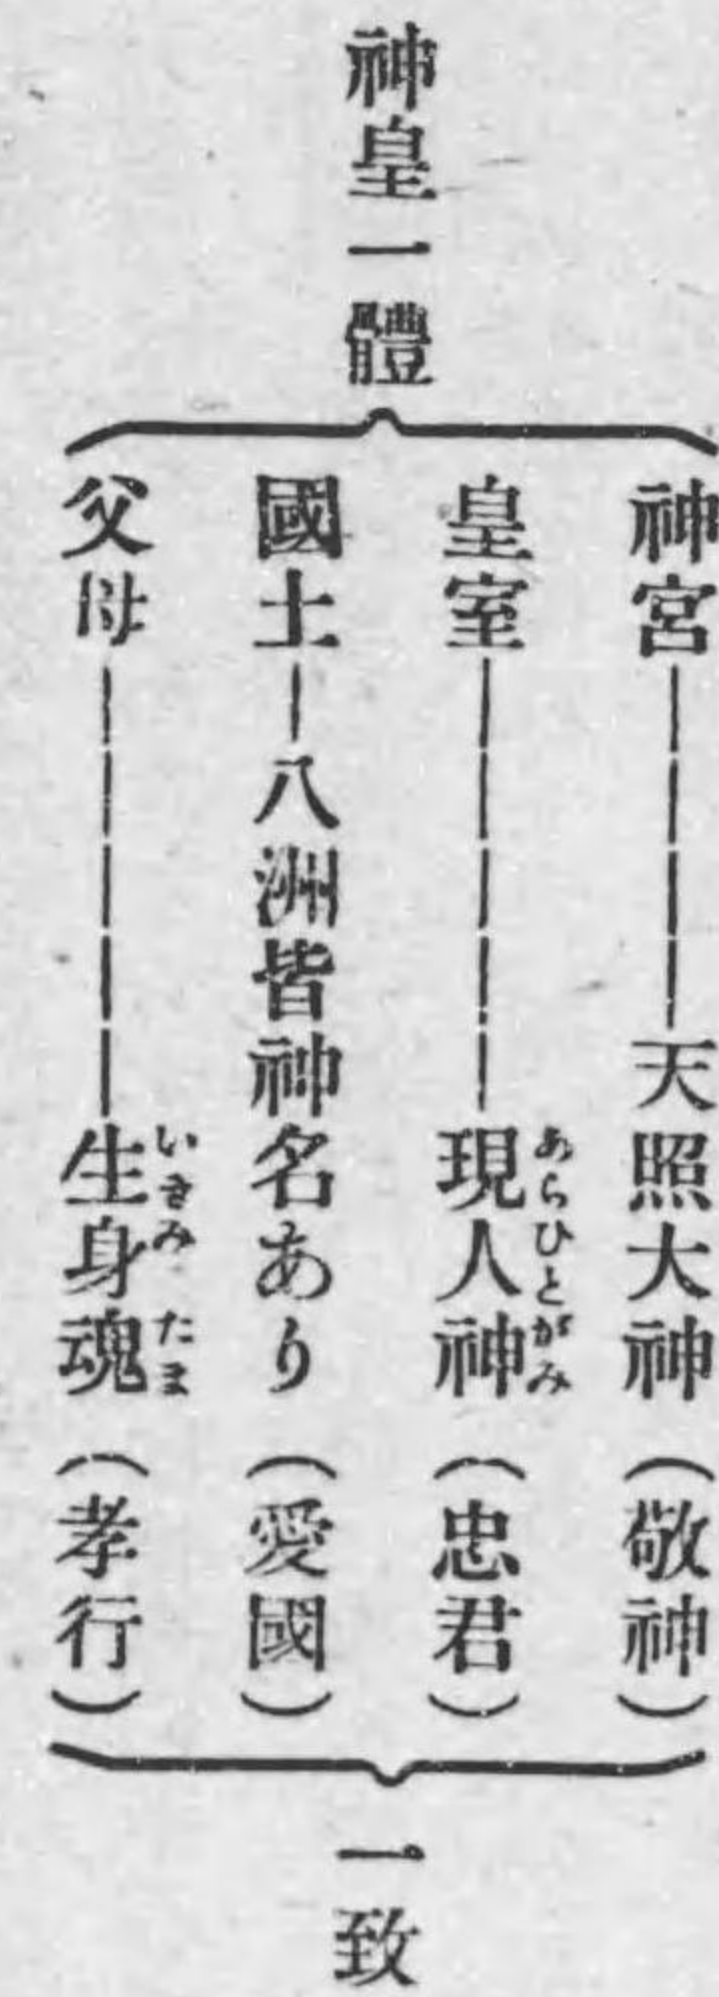 神皇一體
神宮────天照大神(敬神)
皇室─────現人神(忠君)
あらひとがみ
國土─八洲皆神名あり(愛國)
父母─────生身魂(孝行)
いきみたま
一致